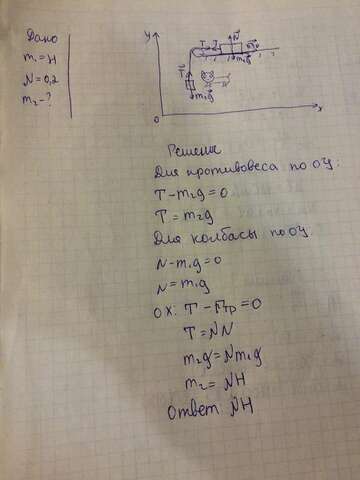 Дано
m₁ = H
N = 0,2
m₂ - ?
y
T
N
T
m₂g
0
x
Решение
Для противовеса по оу:
T - m₂g = 0
T = m₂g
Для колбасы по оу
N - m₁g = 0
N = m₁g
ox: T - Fтр = 0
T = NN
m₂g = Nm₁g
m₂ = NH
ответ NH